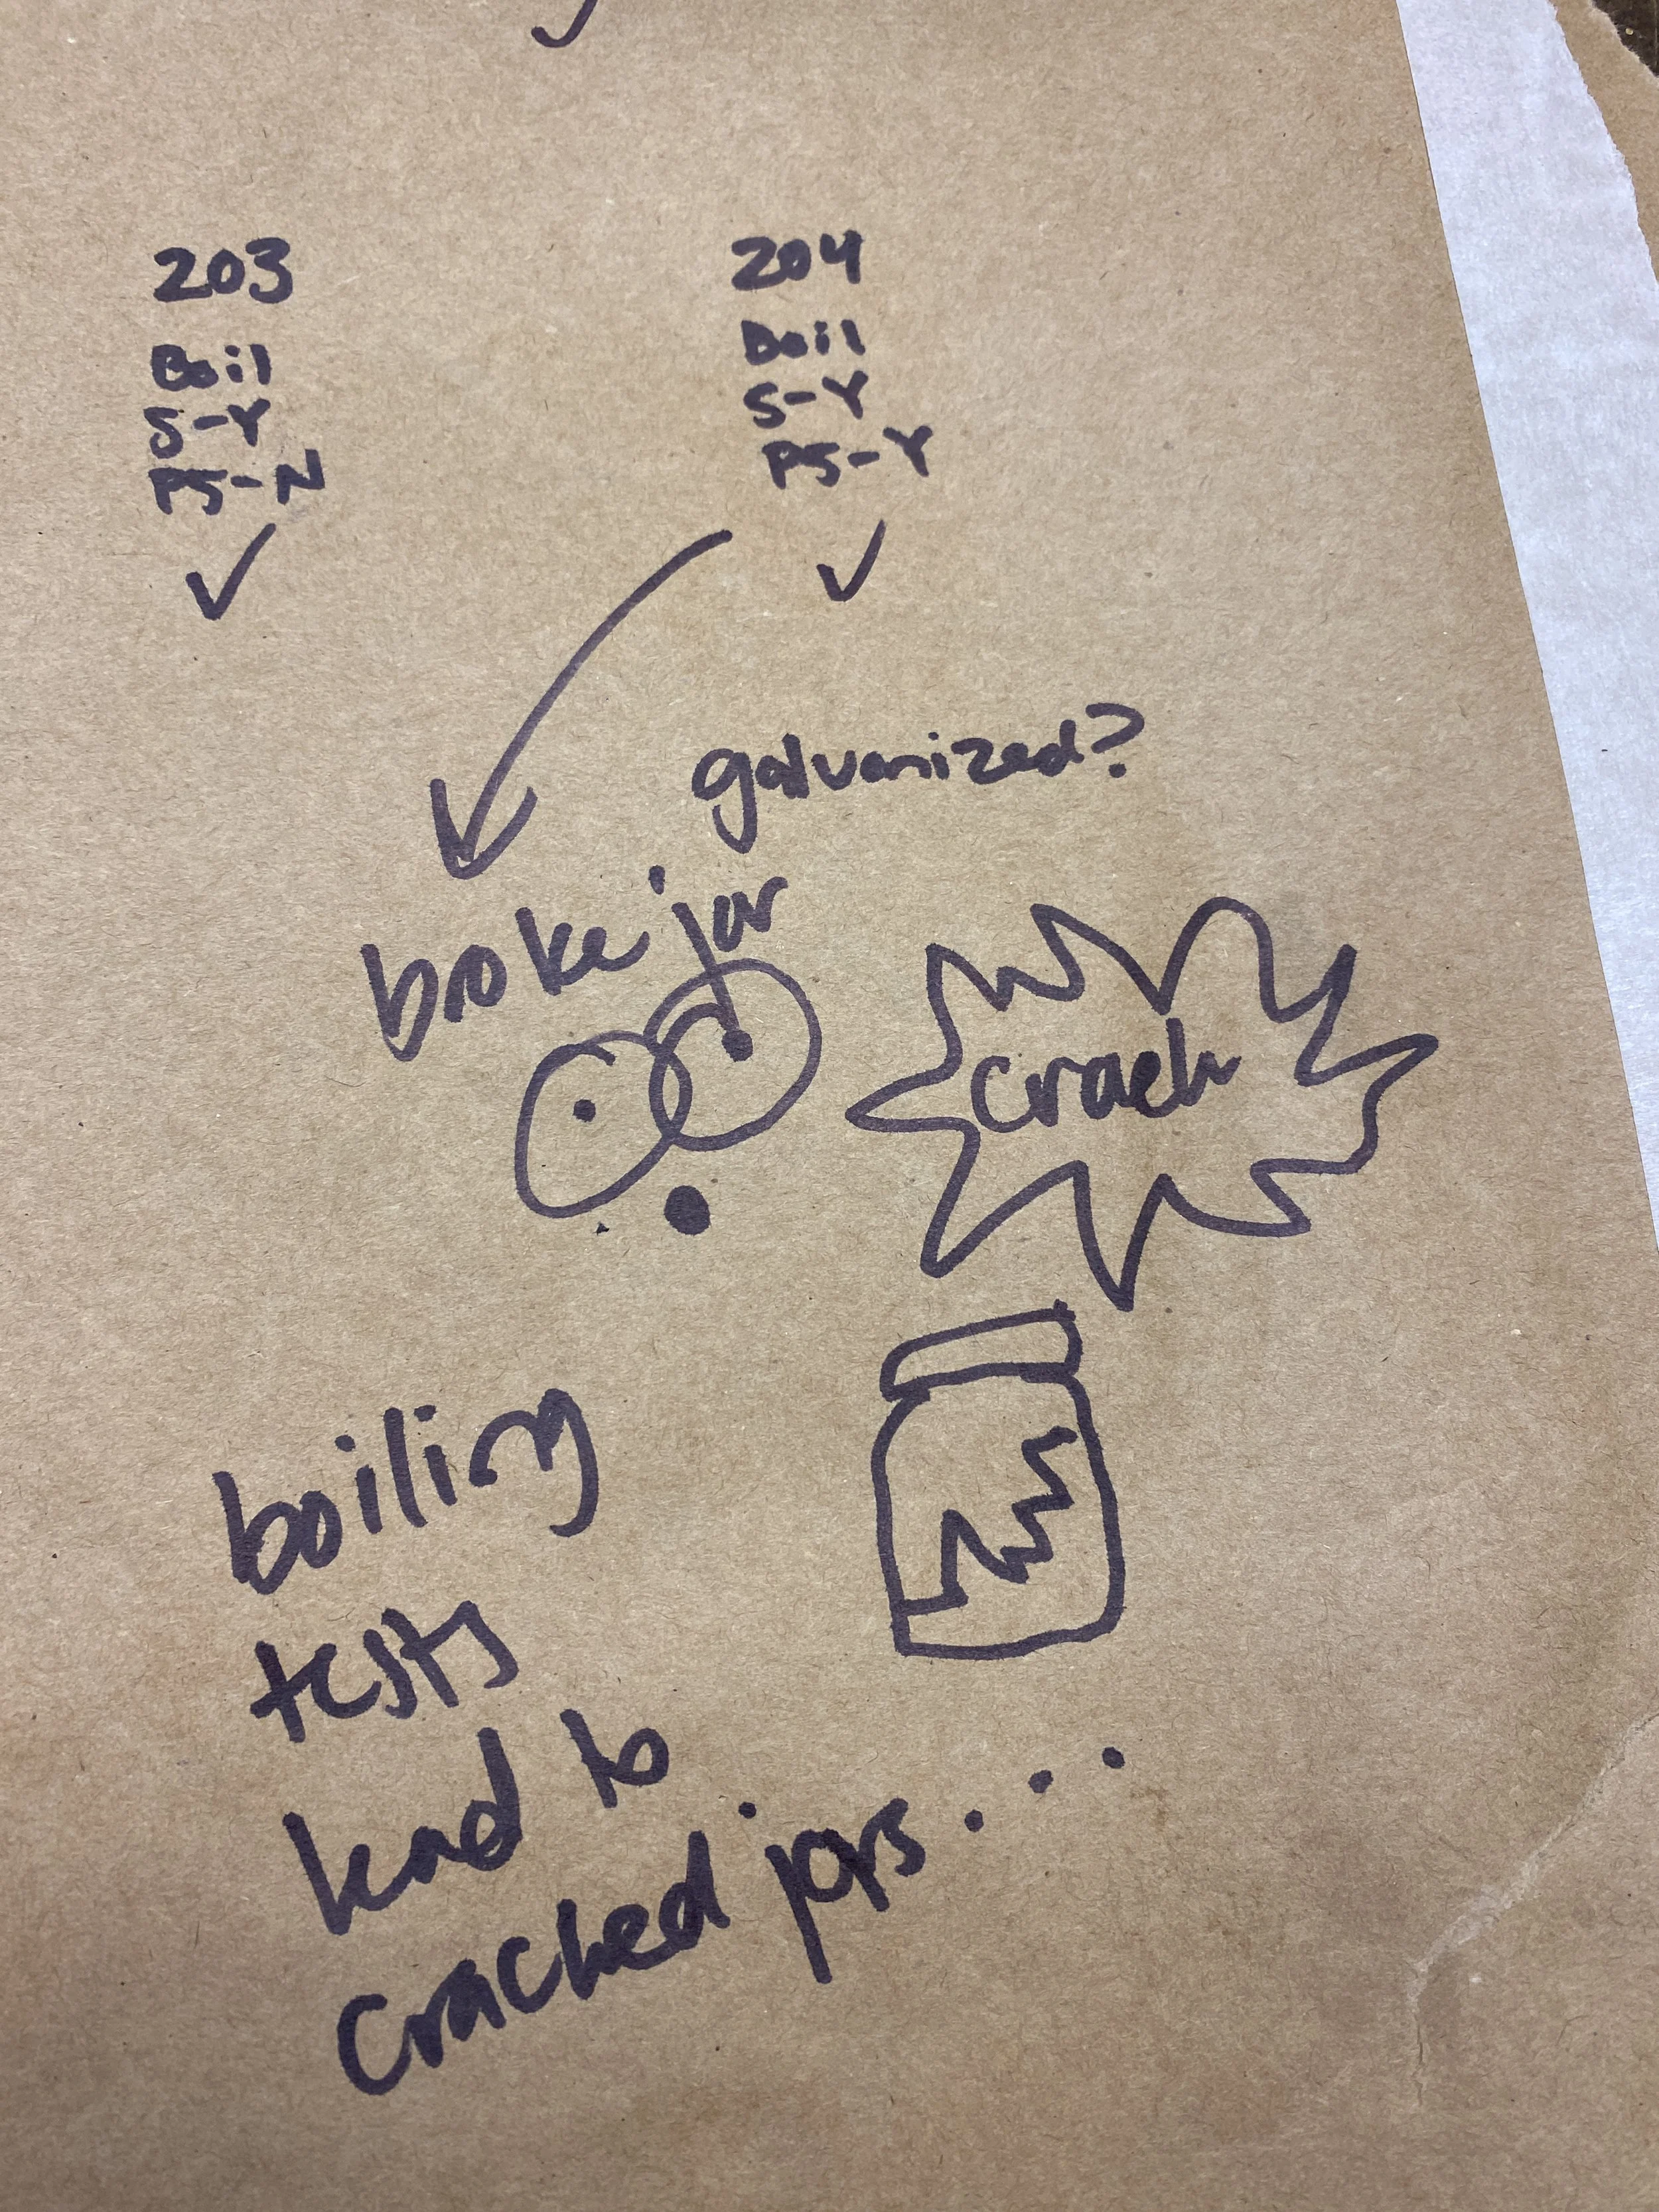 203
Boil
S-Y
PS-N
✓
204
Boil
S-Y
PS-Y
✓
galvanized?
broke jar
crack
boiling
tests
lead to
cracked jars...